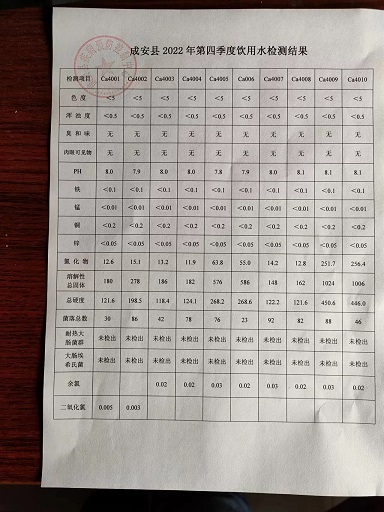 成安县 2022 年第四季度饮用水检测结果
检测项目 Ca4001 Ca4002 Ca4003 Ca4004 Ca4005 Ca006 Ca4007 Ca4008 Ca4009 Ca4010
色 度 <5 <5 <5 <5 <5 <5 <5 <5 <5 <5
浑 浊 度 <0.5 <0.5 <0.5 <0.5 <0.5 <0.5 <0.5 <0.5 <0.5 <0.5
臭 和 味 无 无 无 无 无 无 无 无 无 无
肉眼可见物 无 无 无 无 无 无 无 无 无 无
PH 8.0 7.9 8.0 8.0 7.8 7.9 8.0 8.1 8.1 8.1
铁 <0.1 <0.1 <0.1 <0.1 <0.1 <0.1 <0.1 <0.1 <0.1 <0.1
锰 <0.01 <0.01 <0.01 <0.01 <0.01 <0.01 <0.01 <0.01 <0.01 <0.01
铜 <0.2 <0.2 <0.2 <0.2 <0.2 <0.2 <0.2 <0.2 <0.2 <0.2
锌 <0.05 <0.05 <0.05 <0.05 <0.05 <0.05 <0.05 <0.05 <0.05 <0.05
氯 化 物 12.6 15.1 13.2 11.9 63.8 55.0 14.2 12.8 251.7 256.4
溶解性
总固体 180 278 186 182 576 586 148 162 1024 1006
总硬度 121.6 198.5 118.4 124.1 268.2 268.6 122.2 121.6 450.6 446.0
菌落总数 30 86 42 78 76 23 92 82 88 46
耐热大
肠菌群 未检出 未检出 未检出 未检出 未检出 未检出 未检出 未检出 未检出 未检出
大肠埃
希氏菌 未检出 未检出 未检出 未检出 未检出 未检出 未检出 未检出 未检出 未检出
余氯 0.02 0.02 0.03 0.02 0.03 0.02 0.03 0.02
二氧化氯 0.005 0.003